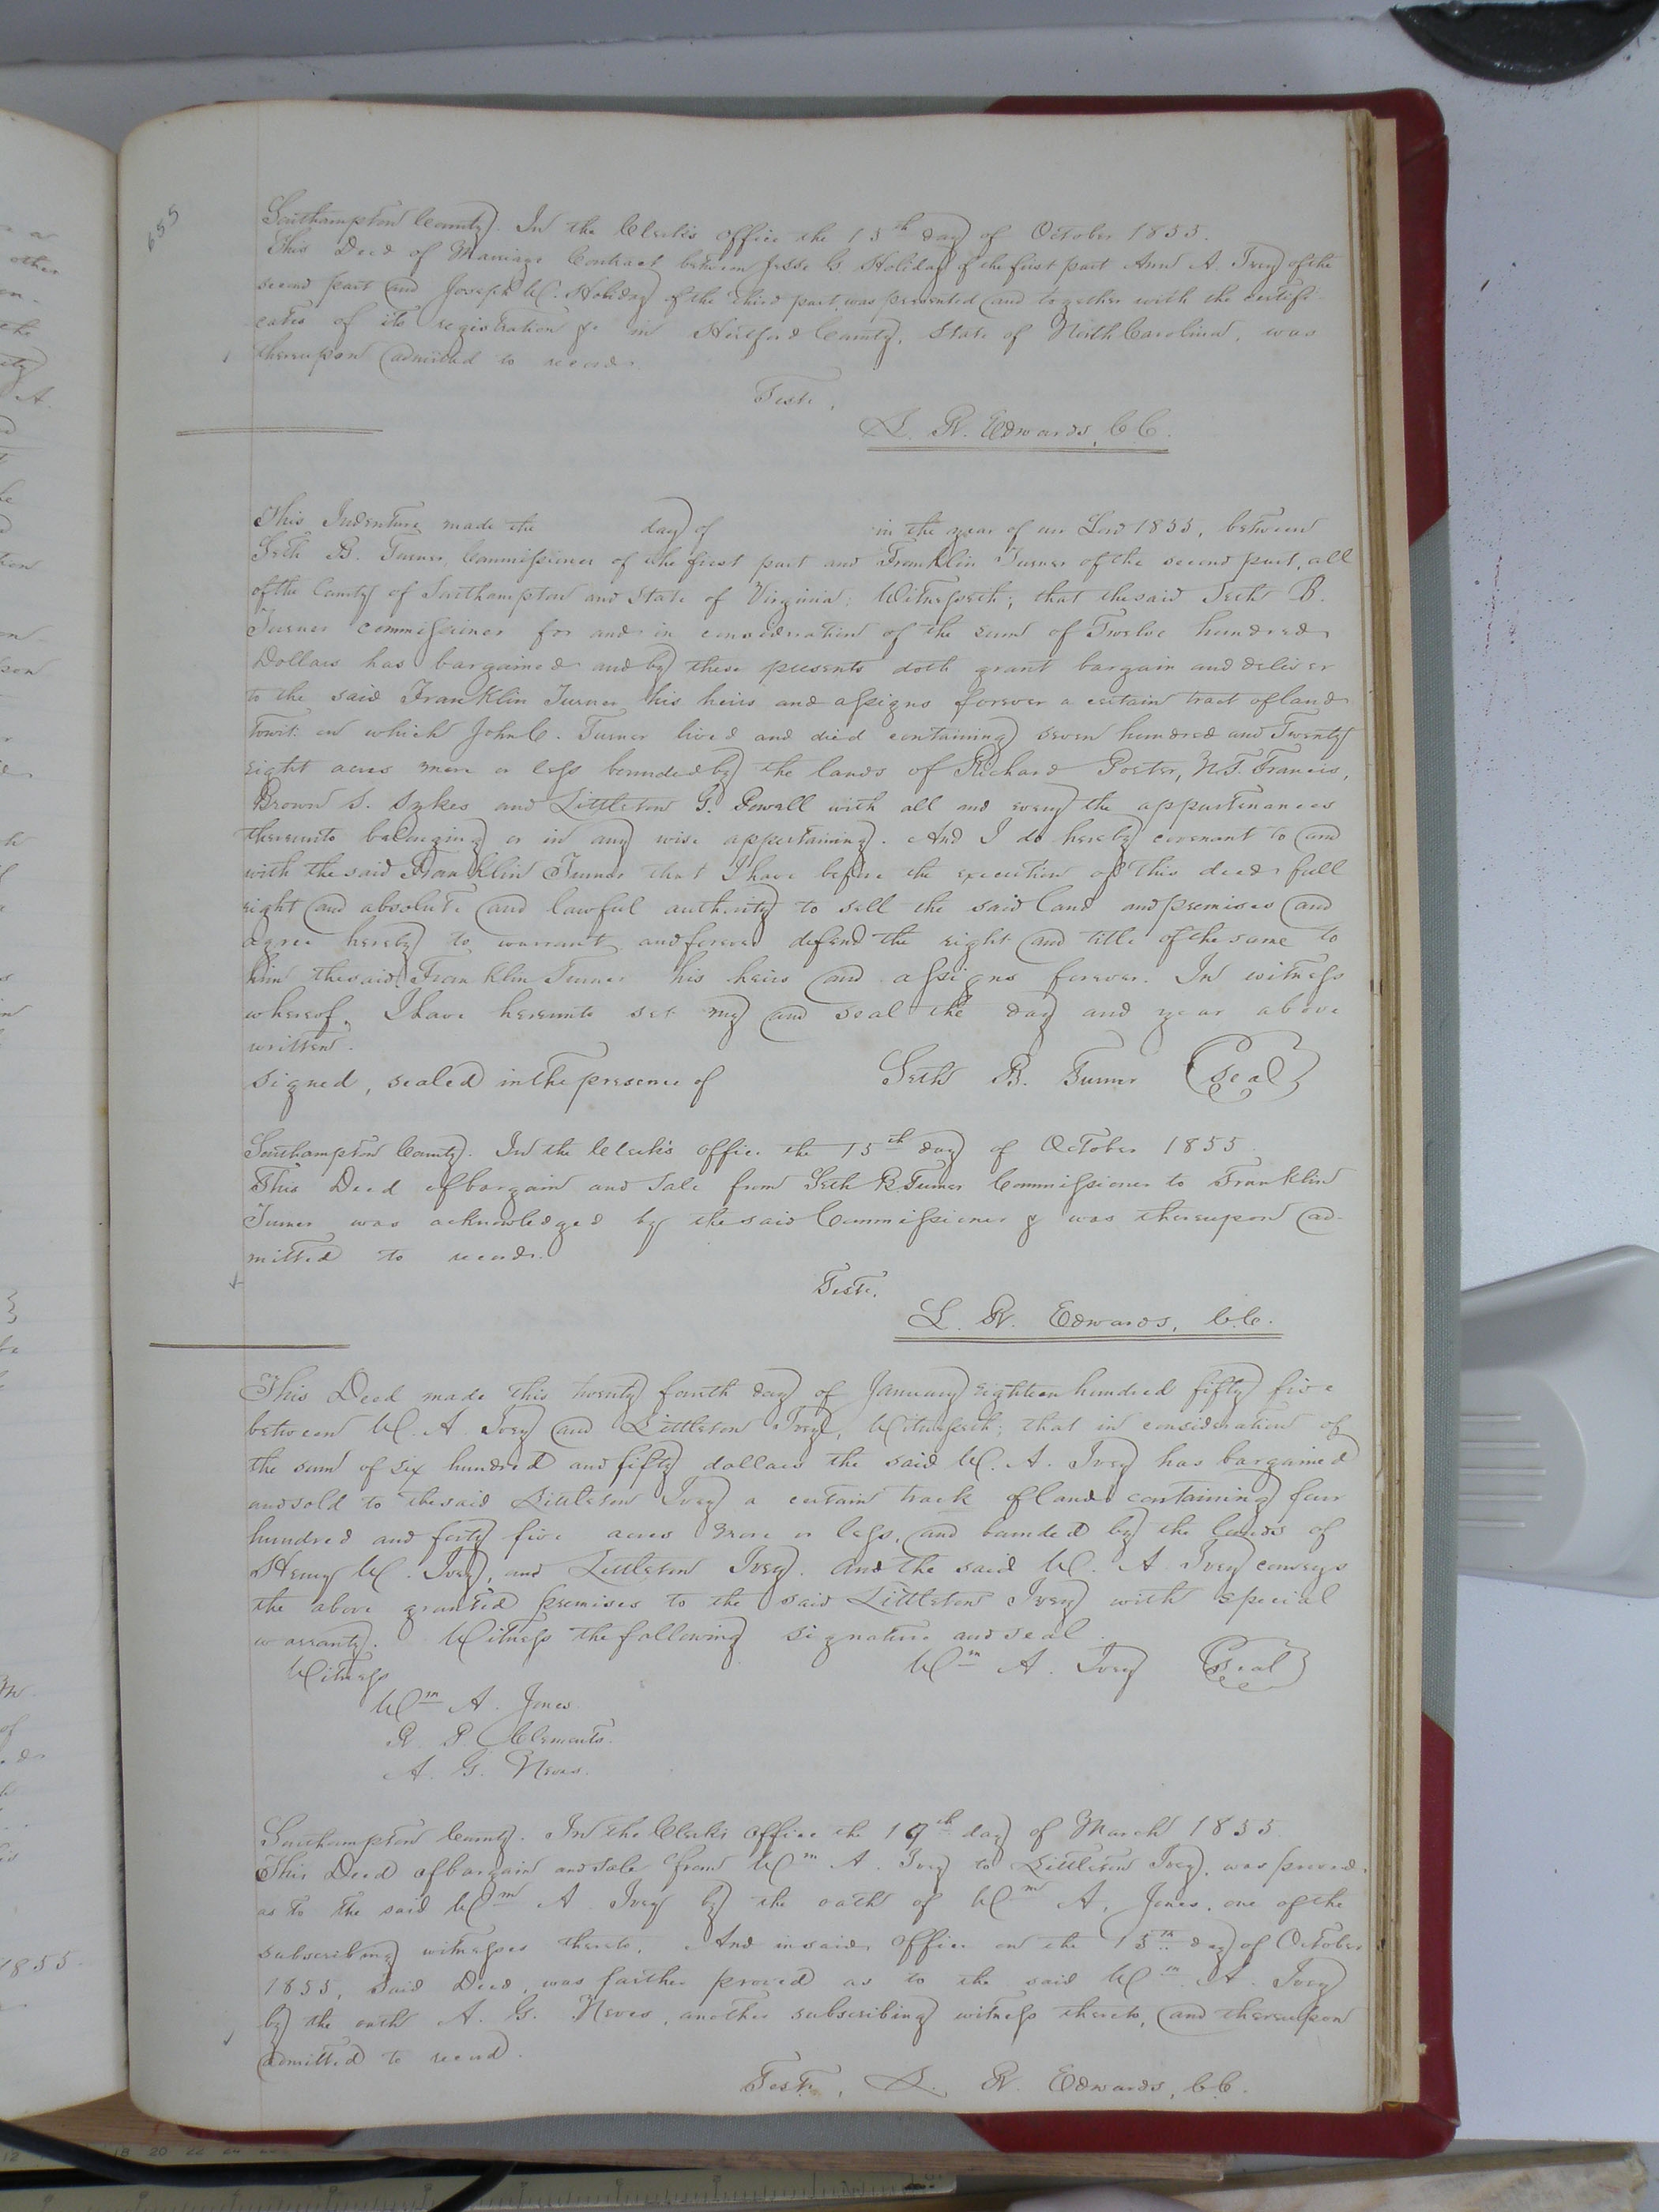 655
Southampton County. In the Clerk's office the 15th day of October 1855.
This Deed of Marriage Contract between Jesse G. Holiday of the first part Ann A. Ivey of the
second part and Joseph W. Holiday of the third part, was presented and together with the certifi-
cates of its registration &c in Hertford County, State of North Carolina, was
thereupon admitted to record.
Teste,
L. R. Edwards, C.C.
This Indenture made the day of in the year of our Lord 1855, between
Seth B. Turner, Commissioner of the first part and Franklin Turner of the second part, all
of the County of Southampton and State of Virginia: Witnesseth; that the said Seth B.
Turner commissioner for and in consideration of the sum of Twelve hundred
Dollars has bargained and by these presents doth grant bargain and deliver
to the said Franklin Turner his heirs and assigns forever a certain tract of land
towit: on which John C. Turner lived and died containing seven hundred and Twenty
eight acres more or less bounded by the lands of Richard Porter, N.T. Francis,
Brown S. Sykes and Littleton G. Powell with all and every the appurtenances
thereunto belonging or in any wise appertaining. And I do hereby covenant to and
with the said Franklin Turner that I have before the execution of this deed full
right and absolute and lawful authority to sell the said land and premises and
agree hereby to warrant and forever defend the right and title of the same to
him the said Franklin Turner his heirs and assigns forever. In witness
whereof, I have hereunto set my and seal the day and year above
written.
signed, sealed in the presence of Seth B. Turner (Seal)
Southampton County. In the Clerk's office the 15th day of October 1855
This Deed of bargain and Sale from Seth B Turner Commissioner to Franklin
Turner was acknowledged by the said Commissioner & was thereupon ad-
mitted to record.
Teste.
L. R. Edwards, C.C.
This Deed made this twenty fourth day of January eighteen hundred fifty five
between W. A. Ivey and Littleton Ivey, Witnesseth; that in consideration of
the sum of six hundred and fifty dollars the said W. A. Ivey has bargained
and sold to the said Littleton Ivey a certain track of land containing four
hundred and forty five acres more or less, and bounded by the lands of
Henry W. Ivey, and Littleton Ivey. And the said W. A. Ivey conveys
the above granted premises to the said Littleton Ivey with special
warranty. Witness the following signature and seal.
Witness Wm A. Ivey (Seal)
Wm A. Jones
R. P. Clements.
A. G. Neves.
Southampton County. In the Clerks Office the 19th day of March 1855
This Deed of bargain and sale from Wm A. Ivey to Littleton Ivey, was proved
as to the said Wm A. Ivey by the oath of Wm A. Jones, one of the
subscribing witnesses thereto. And in said Office on the 15th day of October
1855, said Deed, was farther proved as to the said Wm A. Ivey
by the oath A. G. Neves, another subscribing witness thereto, and thereupon
admitted to record.
Teste, L. R. Edwards, C.C.